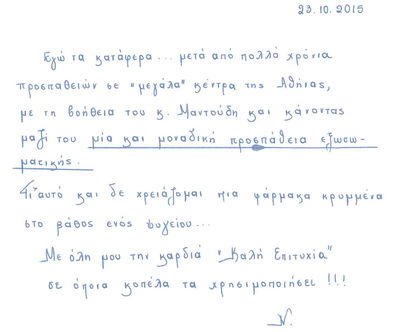 23.10.2015
Εγώ τα κατάφερα... μετά από πολλά χρόνια
προσπαθειών σε "μεγάλα" κέντρα της Αθήνας,
με τη βοήθεια του κ. Μαντούδη και κάνοντας
μαζί του μία και μοναδική προσπάθεια εξωσω-
ματικής.
Γι'αυτό και δε χρειάζομαι πια φάρμακα κρυμμένα
στο βάθος ενός ψυγείου...
Με όλη μου την καρδιά "Καλή Επιτυχία"
σε όποια κοπέλα τα χρησιμοποιήσει !!!
Ν.